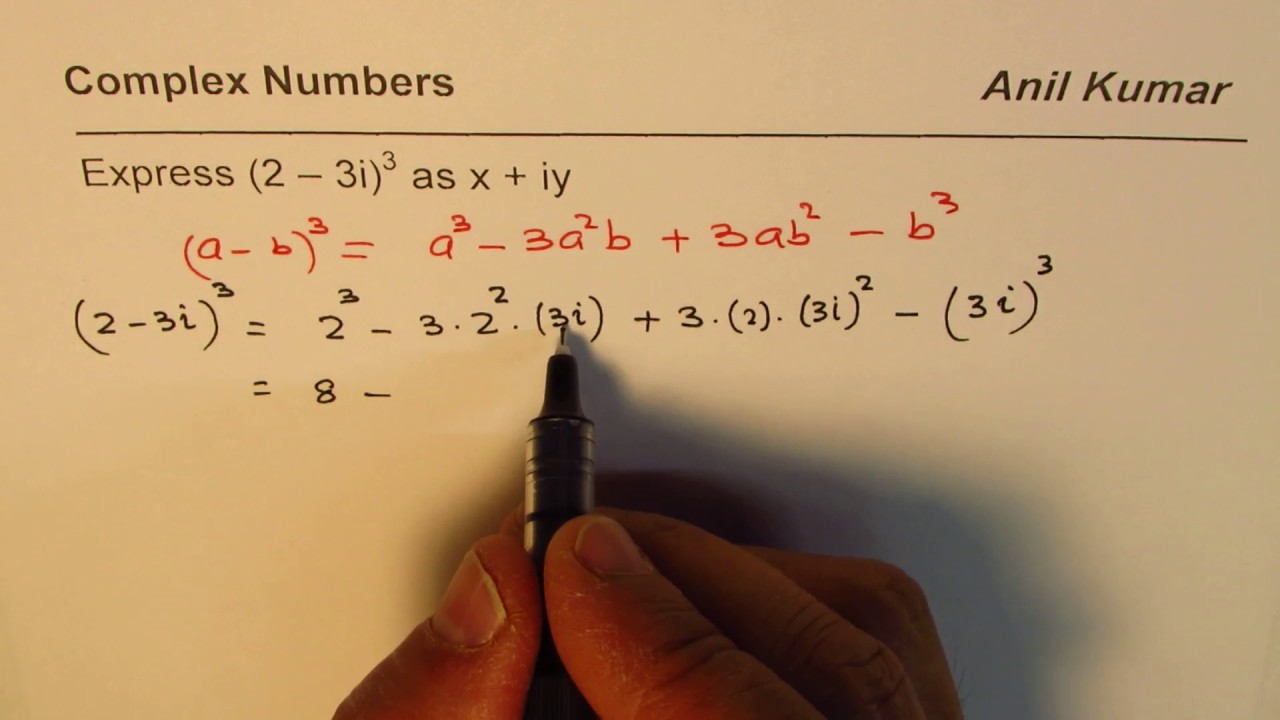 Complex Numbers Anil Kumar
Express (2 – 3i)³ as x + iy
(a - b)³ = a³ - 3a²b + 3ab² - b³
(2-3i)³ = 2³ - 3·2²·(3i) + 3·(2)·(3i)² - (3i)³
= 8 -